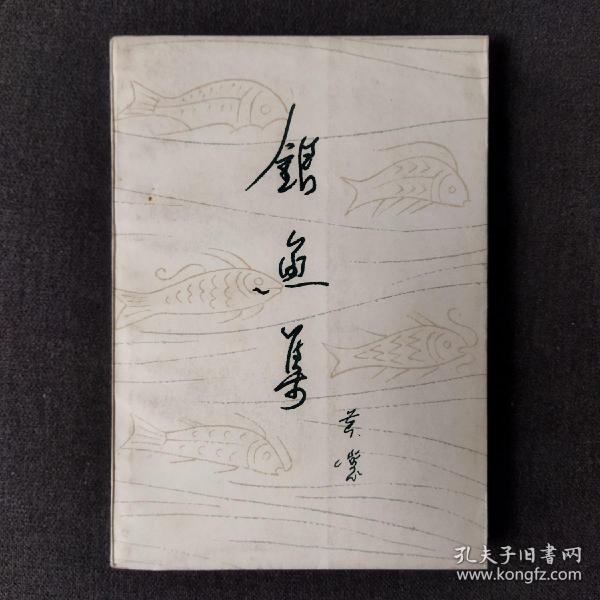 銀鱼集
黄裳
孔夫子旧書网
www.kongfz.com